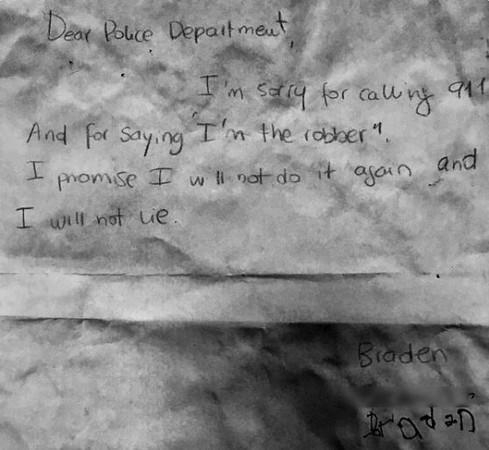 Dear Police Department,
I'm sorry for calling 911
And for saying "I'm the robber".
I promise I will not do it again and
I will not lie.
Braden
Bradan